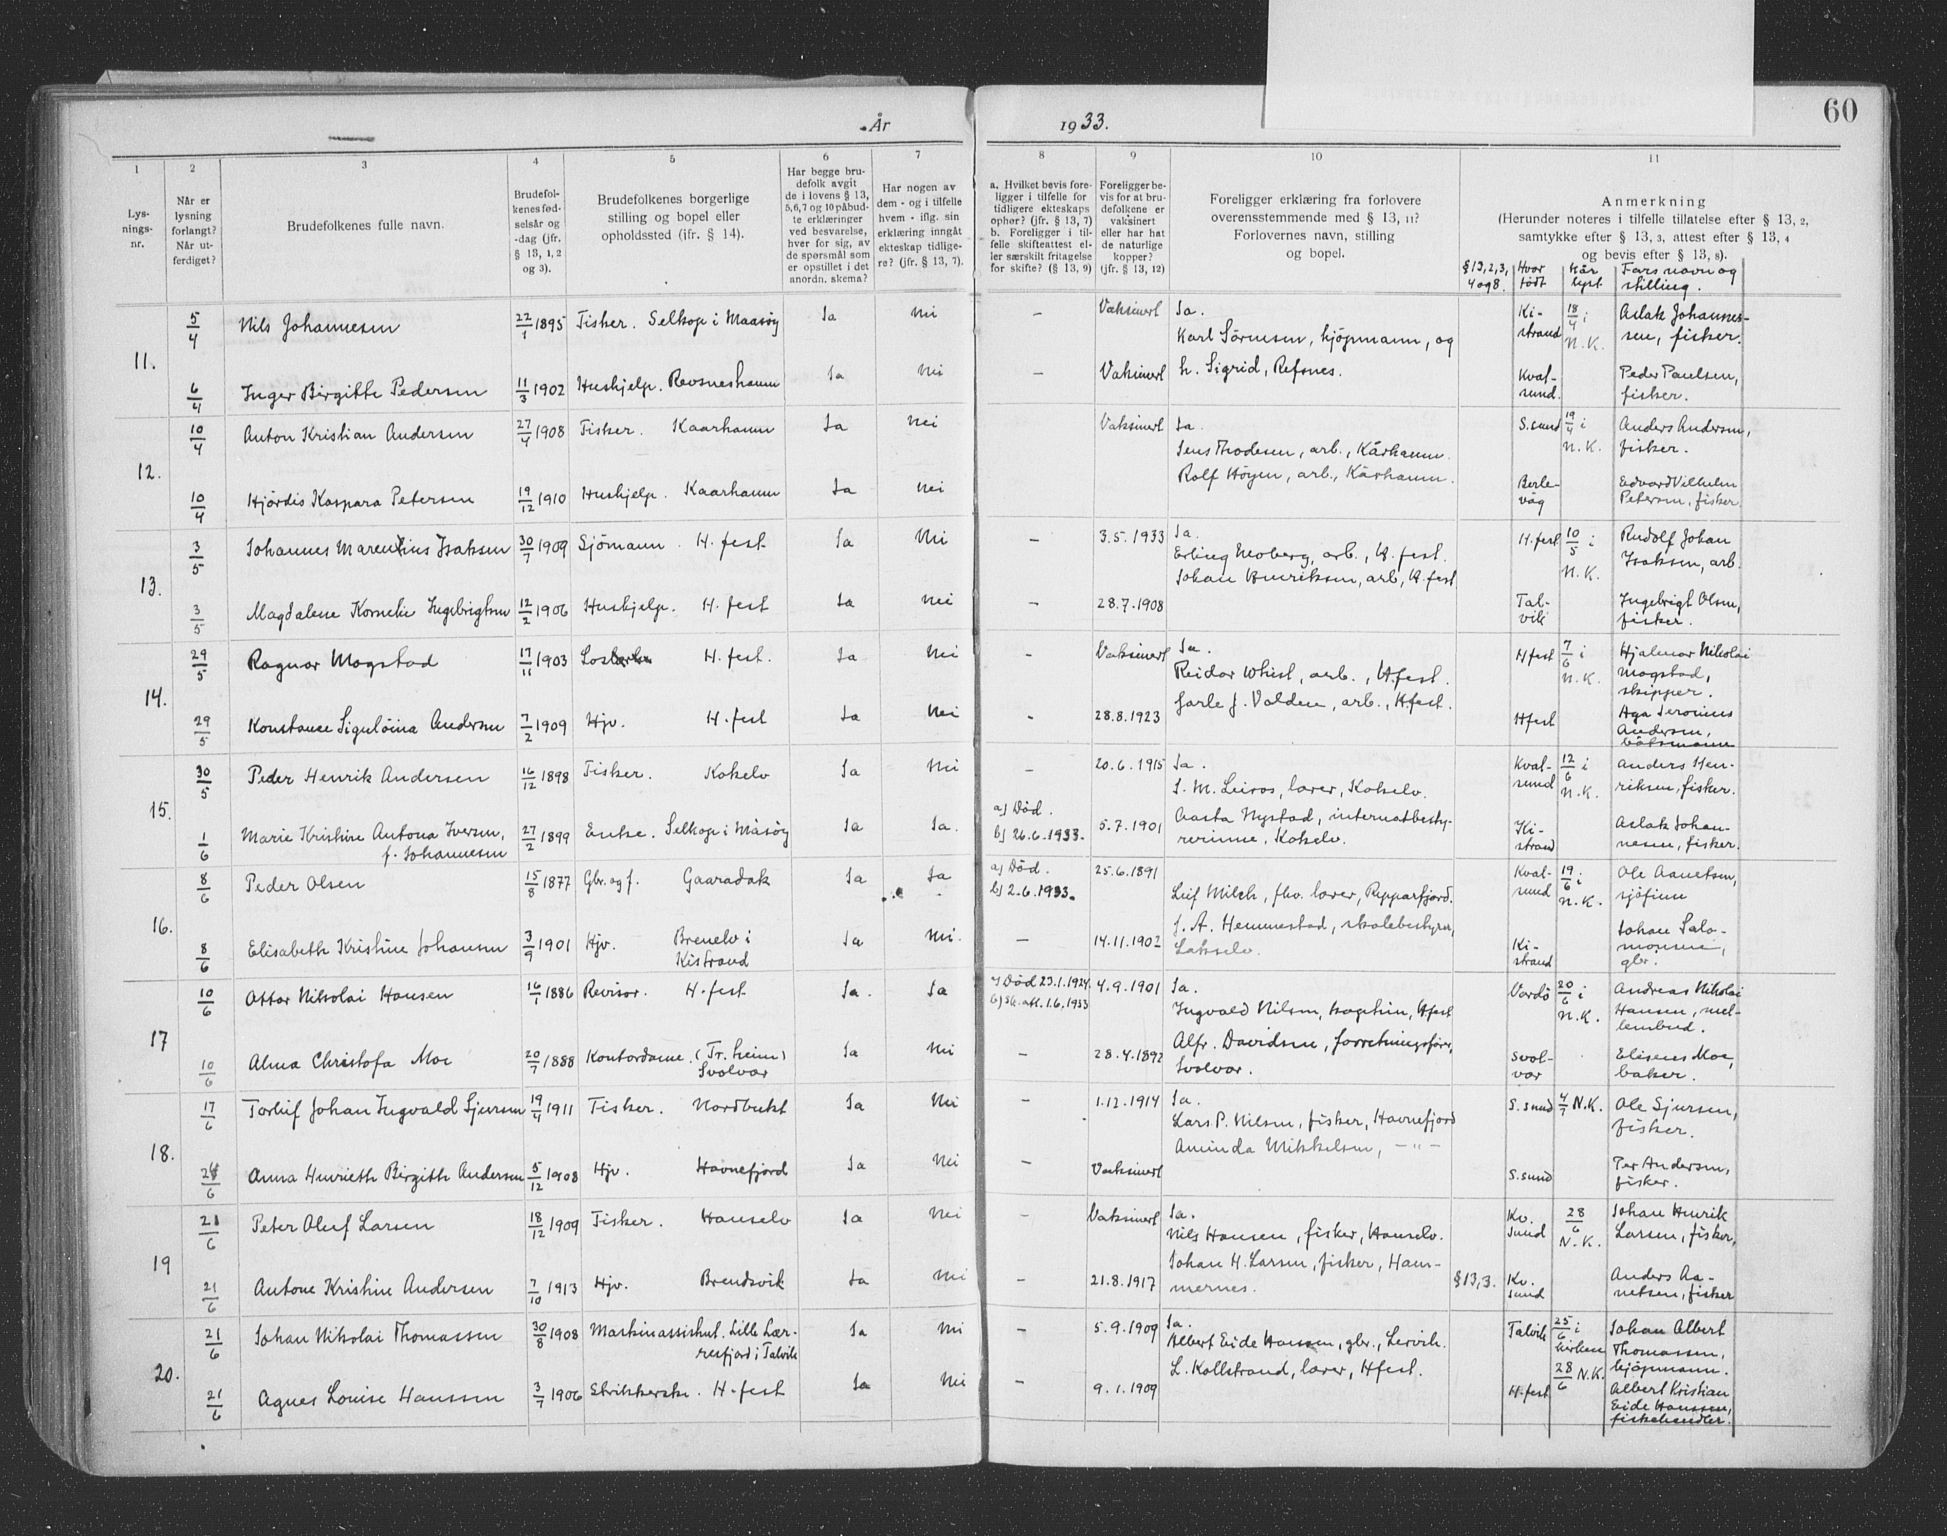 År 1933.
60
1 2 3 4 5 6 7 8 9 10 11
Lysningsnr.
Når er lysning forlangt? Når utferdiget?
Brudefolkenes fulle navn.
Brudefolkenes fødselsår og -dag (jfr. § 13, 1, 2 og 3).
Brudefolkenes borgerlige stilling og bopel eller opholdssted (ifr. § 14).
Har begge brudefolk avgit de i lovens § 13, 5,6,7 og 10 påbudte erklæringer ved besvarelse, hver for sig, av de spørsmål som er opstillet i det anordn. skema?
Har nogen av dem - og i tilfelle hvem - iflg. sin erklæring inngåt ekteskap tidligere? (jfr. § 13, 7).
a. Hvilket bevis foreligger i tilfelle for tidligere ekteskaps ophør? (jfr. § 13, 7) b. Foreligger i tilfelle skifteattest eller særskilt fritagelse for skifte? (§ 13, 9)
Foreligger bevis for at brudefolkene er vaksinert eller har hat de naturlige kopper? (jfr. § 13, 12)
Foreligger erklæring fra forlovere overensstemmende med § 13, 11? Forlovernes navn, stilling og bopel.
Anmerkning
(Herunder noteres i tilfelle tillatelse efter § 13, 2, samtykke efter § 13, 3, attest efter § 13, 4 og bevis efter § 13, 8).
§ 13, 2, 3, 4 og 8. Hvor født Når lyst. Fars navn og stilling.
11.
5/4 Nils Johannesen 22/1 1895 Fisker. Selkop i Maasøy Ja Nei – Vaksinert Ja. Karl Sörensen, kjöpmann, og Kistrand 18/4 i N.K. Aslak Johannessen, fisker.
6/4 Inger Birgitte Pedersen 11/3 1902 Hushjelp. Revsneshamn Ja Nei – Vaksinert h. Sigrid, Refsnes. Kvalsund. Peder Paulsen, fisker.
12.
10/4 Anton Kristian Andersen 27/4 1908 Fisker. Kaarhamn Ja Nei Vaksinert Ja. Jens Thodesen, arb., Kårhamn. S.sund 19/4 i N.K. Anders Andersen, fisker.
10/4 Hjördis Kaspara Petersen 19/12 1910 Hushjelp. Kaarhamn Ja Nei Rolf Höyen, arb., Kårhamn. Berlevåg Edvard Vilhelm Petersen, fisker
13.
3/5 Johannes Marentius Isaksen 30/7 1909 Sjömann. H.fest Ja Nei – 3.5.1933 Ja. Erling Moberg, arb., H.fest. H.fest 10/5 i N.K. Rudolf Johan Isaksen, arb.
3/5 Magdalene Kornelie Ingebrigtsen 12/2 1906 Hushjelp. H.fest Ja Nei – 28.7.1908 Johan Henriksen, arb, H.fest Talvik Ingebrigt Olsen, fisker.
14.
29/5 Ragnar Mogstad 17/11 1903 H.fest. Ja Nei – Vaksinert Ja. Reidar Whist, arb., H.fest. H fest 7/6 i N.K. Hjalmar Nikolai Mogstad, skipper.
29/5 Konstanse Andersen 7/2 1909 Hjv. H.fest Ja Nei - 28.8.1923 Jarle J. Valden, arb., H.fest. H fest Andersen, båtsmann
15.
30/5 Peder Henrik Andersen 16/12 1898 Fisker. Kokelv Ja Nei – 20.6.1915 Ja. J. M. Leiros, lærer, Kokelv. Kvalsund 12/6 i N.K. Anders Henriksen, fisker.
1/6 Marie Kristine Antona Iversen, f. Johannesen 27/2 1899 Enke. Selkop i Måsöy Ja Ja. a) Död. b) 26.6.1933. 5.7.1901 Aasta Nystad, internatbestyrerinne, Kokelv. Kistrand Aslak Johannesen, fisker.
16.
8/6 Peder Olsen 15/8 1877 Gbr. og f. Gaaradak Ja Ja a) Död. b) 2.6.1933. 25.6.1891 Leif Milch, fhv. lærer, Repparfjord. Kvalsund 19/6 i N.K. Ole sjöfinne
8/6 Elisabeth Kristine Johansen 3/9 1901 Hjv. Brenelv i Kistrand Ja Nei. – 14.11.1902 J. A. Hemmestad, skolebestyrer, Lakselv. Kistrand Johan Salomonsen, gbr.
17
10/6 Ottar Nikolai Hansen 16/1 1886 Revisor. H.fest Ja. Ja a) Död 23.1.1924. b) Sk.att. 1.6.1933 4.9.1901 Ja. Ingvald Nilsen, kaptein, H.fest Vardö 20/6 i N.K. Andreas Nikolai Hansen,
10/6 Alma Christofa Moe 20/7 1888 Kontordame. (Tr.heim) Svolvær Ja Nei – 28.4.1892 Alfr. Davidsen, forretningsförer, Svolvær. Svolvær Elisens Moe, baker.
18.
17/6 Torleif Johan Ingvald Sjursen 19/4 1911 Fisker. Nordbukt Ja Nei – 1.12.1914 Ja. Lars P. Nilsen, fisker, Havnefjord S.sund 4/7 N.K. Ole Sjursen, fisker.
/6 Anna Henriette Birgitte Andersen 5/12 1908 Hjv. Havnefjord Ja Nei – Vaksinert Aminda Mikkelsen, –"– S.sund Per Andersen, fisker.
19
21/6 Peter Oluf Larsen 18/12 1909 Fisker. Hanselv Ja Nei – Vaksinert Ja. Nils Hansen, fisker, Hanselv. Kv. sund 28/6 N.K. Johan Henrik Larsen, fisker,
21/6 Antone Kristine Andersen 7/10 1913 Hjv. Brendsvik Ja Nei – 21.8.1917 Johan H. Larsen, fisker, Hammernes. § 13,3. Kv. sund Anders fisker
20.
21/6 Johan Nikolai Thomassen 30/8 1908 Maskinassistent. Lille Lerresfjord i Talvik Ja Nei – 5.9.1909 Ja. Albert Eide Hanssen, gbr., Lervik. Talvik 25/6 i kirken 28/6 N.K. Johan Albert Thomassen, kjöpmann.
21/6 Agnes Lovise Hanssen 3/7 1906 Strikkerske. H.fest Ja Nei – 9.1.1909 L. Kollstrand, lærer, H.fest. H.fest Albert Kristian Eide Hanssen, fiskehandler.